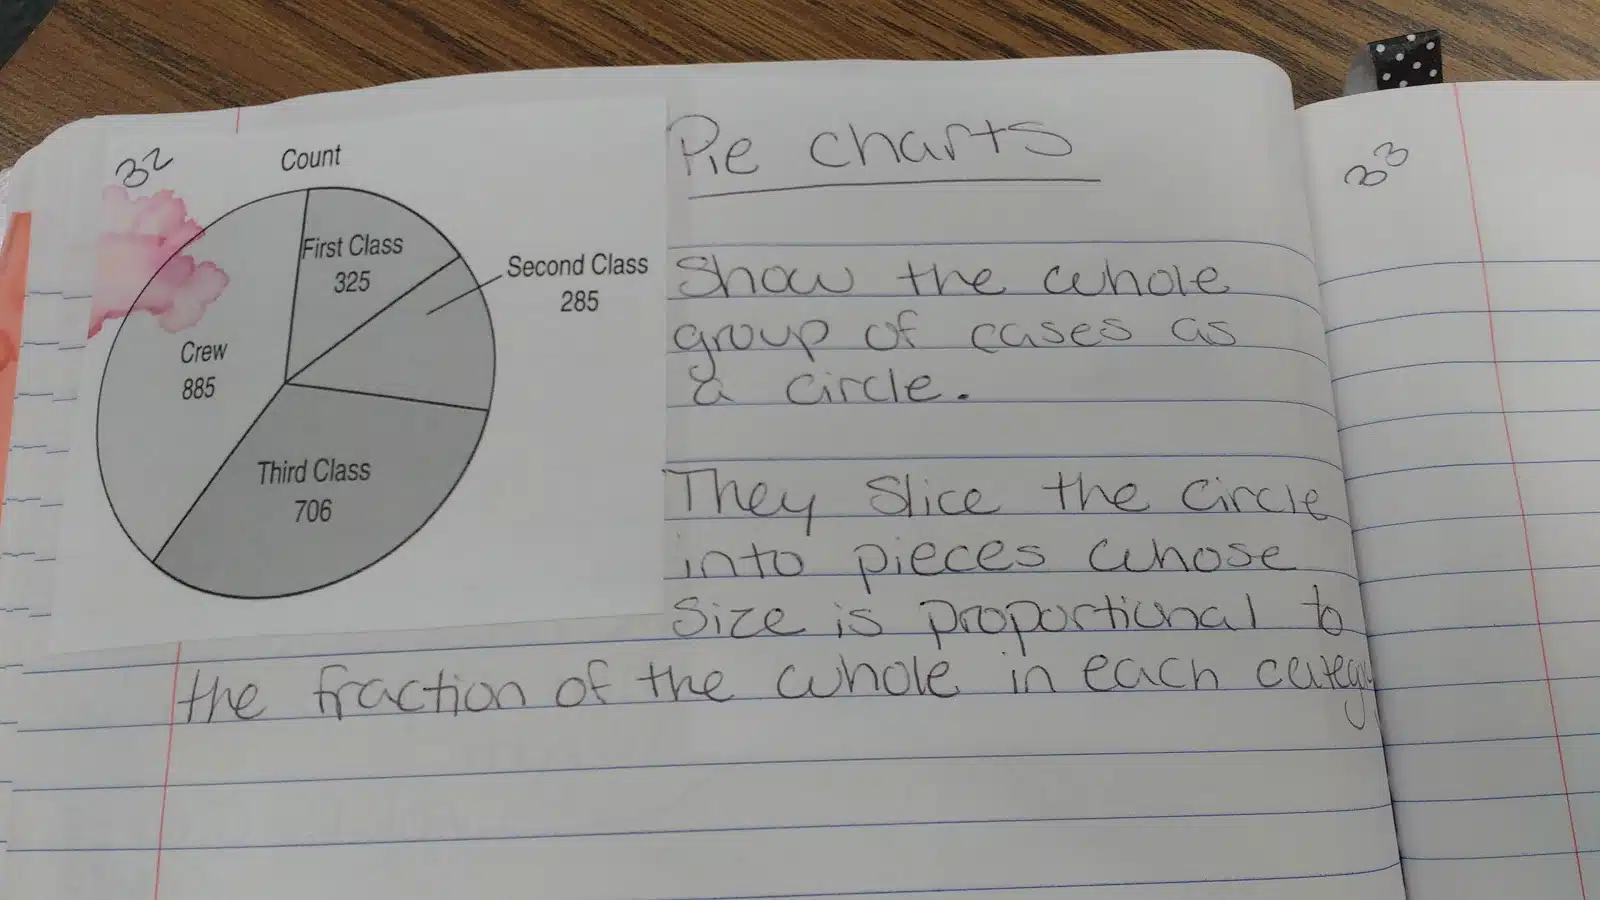 32
Count
First Class
325
Second Class
285
Crew
885
Third Class
706
Pie charts
Show the whole
group of cases as
a circle.
They slice the circle
into pieces whose
size is proportional to
the fraction of the whole in each category
33